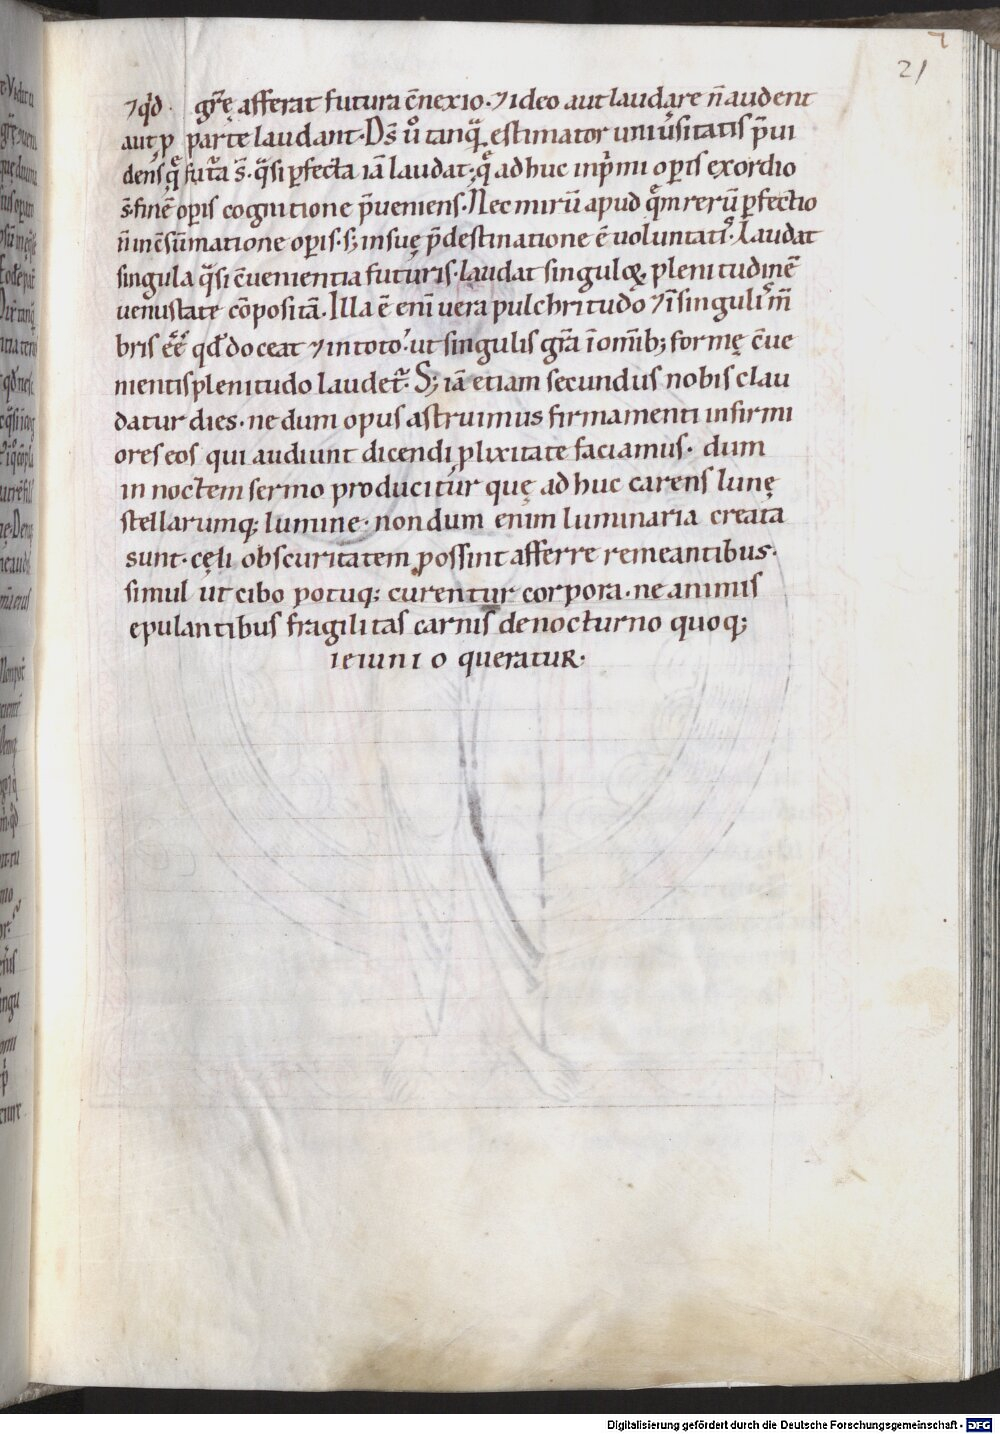 21
⁊ qd̓ · gr̄ę afferat futura c̄nexio · ⁊ ideo aut laudare n̄ audent
aut ꝓ parte laudant · D̄s u̾ tanq̄ estimator uniu̾sitatis p̄ui
dens q̄ futa̅ s̄ · q̄si ꝑfecta ia̅ laudat · q̄ adhuc in p̓mi oꝑis exordio
s̄ · fine̅ oꝑis cognitione p̄ueniens · Nec miru̅ apud que̅ reru̅ ꝑfectio
n̄ in c̄su̅matione oꝑis · s; in suę p̄destinatione ē uoluntatis · Laudat
singula q̄si c̄uenientia futuris · laudat singuloꝝ plenitudine̅
uenustate co̅posita̅ · Illa ē eni̅ uera pulchritudo ⁊ i̅ singulis m̄
bris e̅e̅ qd̓ doceat ⁊ in toto · ut singulis gr̄a i̅ omib; formę c̄ue
nientis plenitudo laudet᷑ · S; ia̅ etiam secundus nobis clau
datur dies · ne dum opus astruimus firmamenti infirmi
ores eos qui audiunt dicendi ꝓlixitate faciamus · dum
in noctem sermo producitur quę ad huc carens lunę
stellarumq; lumine · nondum enim luminaria creata
sunt · cęli obscuritatem possint afferre remeantibus ·
simul ut cibo potuq; curentur corpora · ne animis
epulantibus fragilitas carnis de nocturno quoq;
ieiunio queratur ·
Digitalisierung gefördert durch die Deutsche Forschungsgemeinschaft - DFG